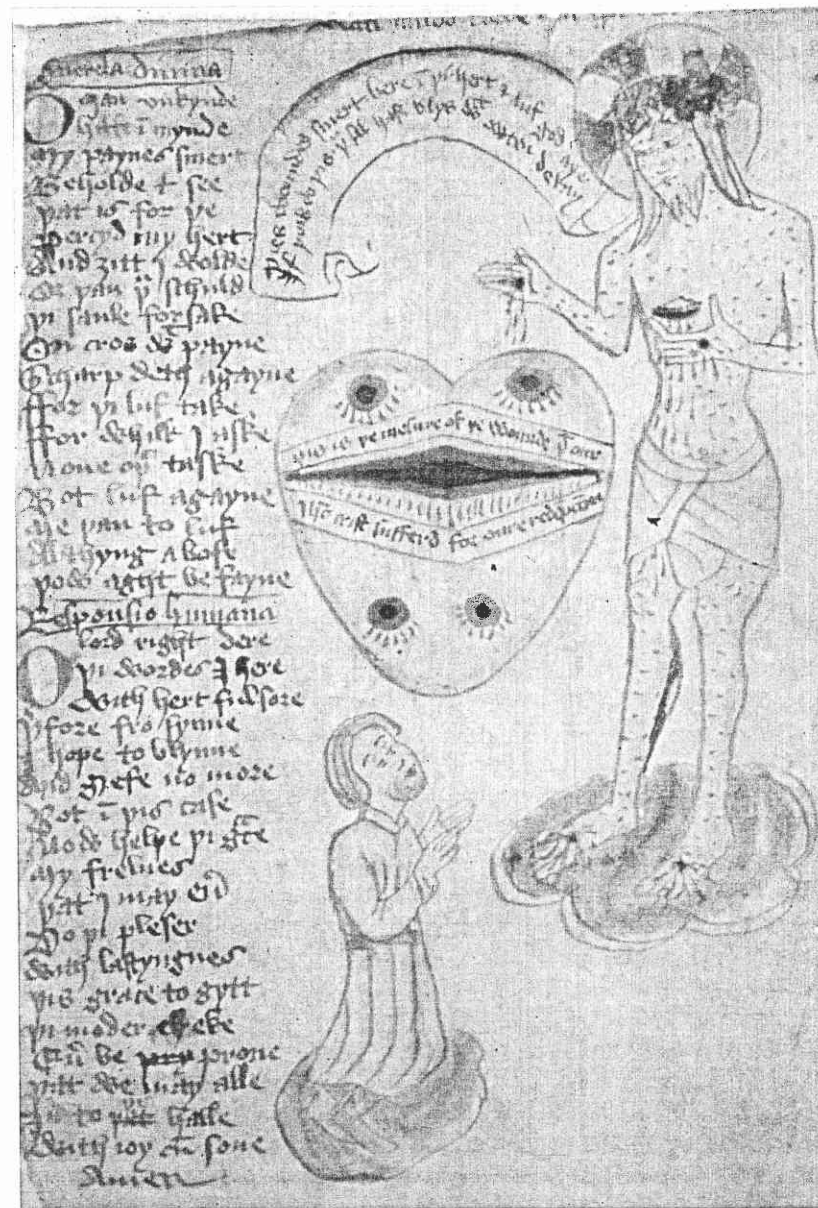 Querela diuina
O man vnkynde
hafe i mynde
my paynes smert
Beholde & see
þat is for þe
percyd my hert
And ȝitt I wolde
Or þan þu schuld
þi saule forsak
On cros wt payne
Scharp deth agayne
ffor þi luf take
ffor whilk I aske
None oþr taske
Bot luf agayne
Me þan to luf
Al thyng abofe
þow aght be fayne
Responsio humana
O lord right dere
þi wordes I here
With hert ful sore
þrfore fro synne
I hope to blynne
And grefe no more
Bot i þis case
Now helpe þi grace
My frelnes
þat I may eur
Do þi pleser
With lastyngnes
þis grace to gytt
þi moder eke
Eur be prone
þat we may alle
In to þi halle
With ioy cu sone
Amen
þies woundes smert bere i þi hert & luf god aye
If þow do þis þu sal hafe blys wtowten delay
þis is þe mesure of þe wounde þat our
Ihc crist sufferd for oure redempcon